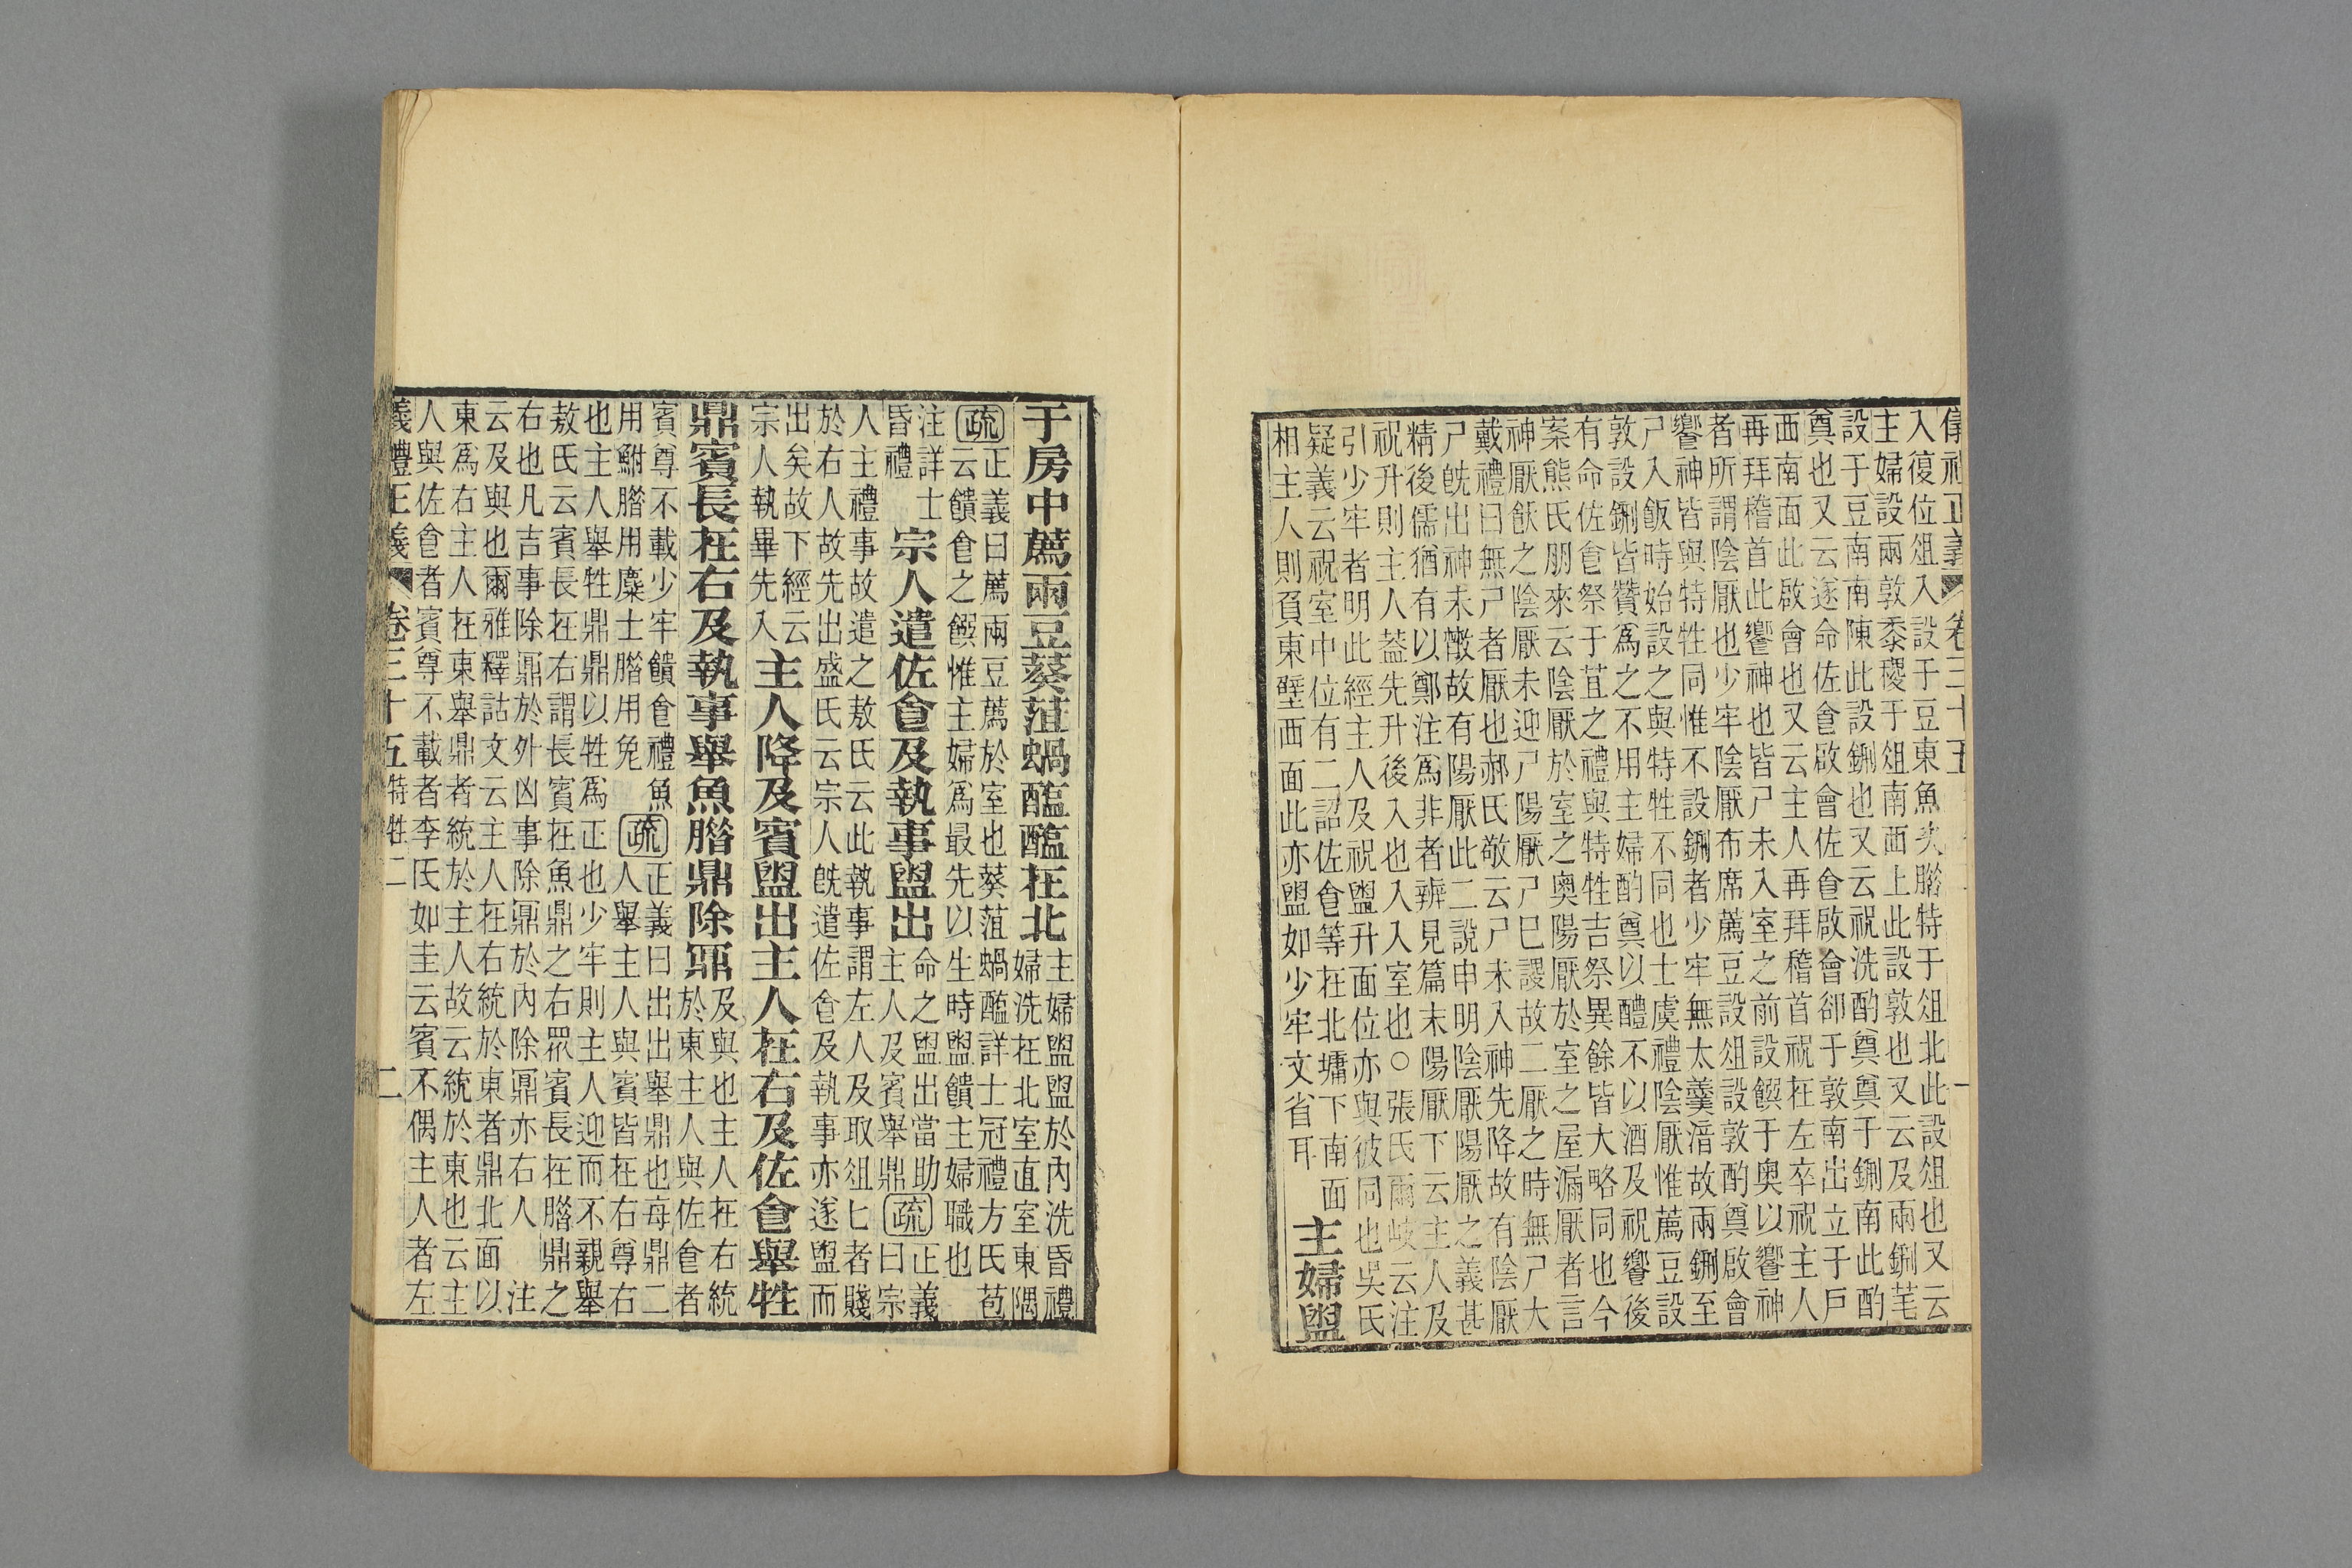 儀禮正義 卷三十五
入復位俎入設于豆東魚次腊特于俎北此設俎也又云
主婦設兩敦黍稷于俎南西上此設敦也又云及兩鉶芼
設于豆南南陳此設鉶也又云祝洗酌奠奠于鉶南此酌
奠也又云遂命佐㑹啟㑹佐㑹啟會卻于敦南出立于戶
西南面此啟會也又云主人再拜稽首祝在左卒祝主人
再拜稽首此饗神也皆尸未入室之前設饌于奧以饗神
者所謂陰厭也少牢陰厭布席薦豆設俎設敦酌奠啟會
饗神皆與特牲同惟不設鉶者少牢無太羹湆故兩鉶至
尸入飯時始設之與特牲不同也士虞禮陰厭惟薦豆設
敦設鉶皆贊爲之不用主婦酌奠以醴不以酒及祝饗後
有命佐食祭于苴之禮與特牲吉祭異餘皆大略同也今
案熊氏朋來云陰厭於室之奧陽厭於室之屋漏厭者言
神厭飫之陰厭未迎尸陽厭尸巳謖故二厭之時無尸大
戴禮曰無尸者厭也郝氏敬云尸未入神先降故有陰厭
尸旣出神未㪚故有陽厭此二說申明陰厭陽厭之義甚
精後儒猶有以鄭注爲非者辨見篇末陽厭下云主人及
祝升則主人葢先升後入也入入室也○張氏爾岐云注
引少牢者明此經主人及祝盥升面位亦與彼同也吳氏
疑義云祝室中位有二詔佐食等在北墉下南面
相主人則頁東壁西面此亦盥如少牢文省耳 主婦盥
于房中薦兩豆葵菹蝸醢醢在北
主婦盥盥於內洗昏禮
婦洗在北室直室東隅
疏正義曰薦兩豆薦於室也葵菹蝸醢詳士冠禮方氏苞
云饋食之饌惟主婦爲最先以生時盥饋主婦職也
注詳士
昏禮
宗人遣佐食及執事盥出
命之盥出當助
主人及賓舉鼎
疏正義
曰宗
人主禮事故遣之敖氏云此執事謂左人及取俎匕者賤
於右人故先出盛氏云宗人旣遣佐食及執事亦遂盥而
出矣故下經云
宗人執畢先入
主人降及賓盥出主人在右及佐食舉牲
鼎賓長在右及執事舉魚腊鼎除鼏
及與也主人在右統
於東主人與佐食者
賓尊不載少牢饋食禮魚
用鮒腊用麋士腊用兔
疏正義曰出出舉鼎也每鼎二
人舉主人與賓皆在右尊右
也主人舉牲鼎鼎以牲爲正也少牢則主人迎而不親舉
敖氏云賓長在右謂長賓在魚鼎之右眾賓長在腊鼎之
右也凡吉事除鼏於外凶事除鼏於內除鼏亦右人 注
云及與也爾雅釋詁文云主人在右統於東者鼎北面以
東爲右主人在東舉鼎者統於主人故云統於東也云主
人與佐食者賓尊不載者李氏如圭云賓不偶主人者左
儀禮正義 卷三十五 特牲二 二